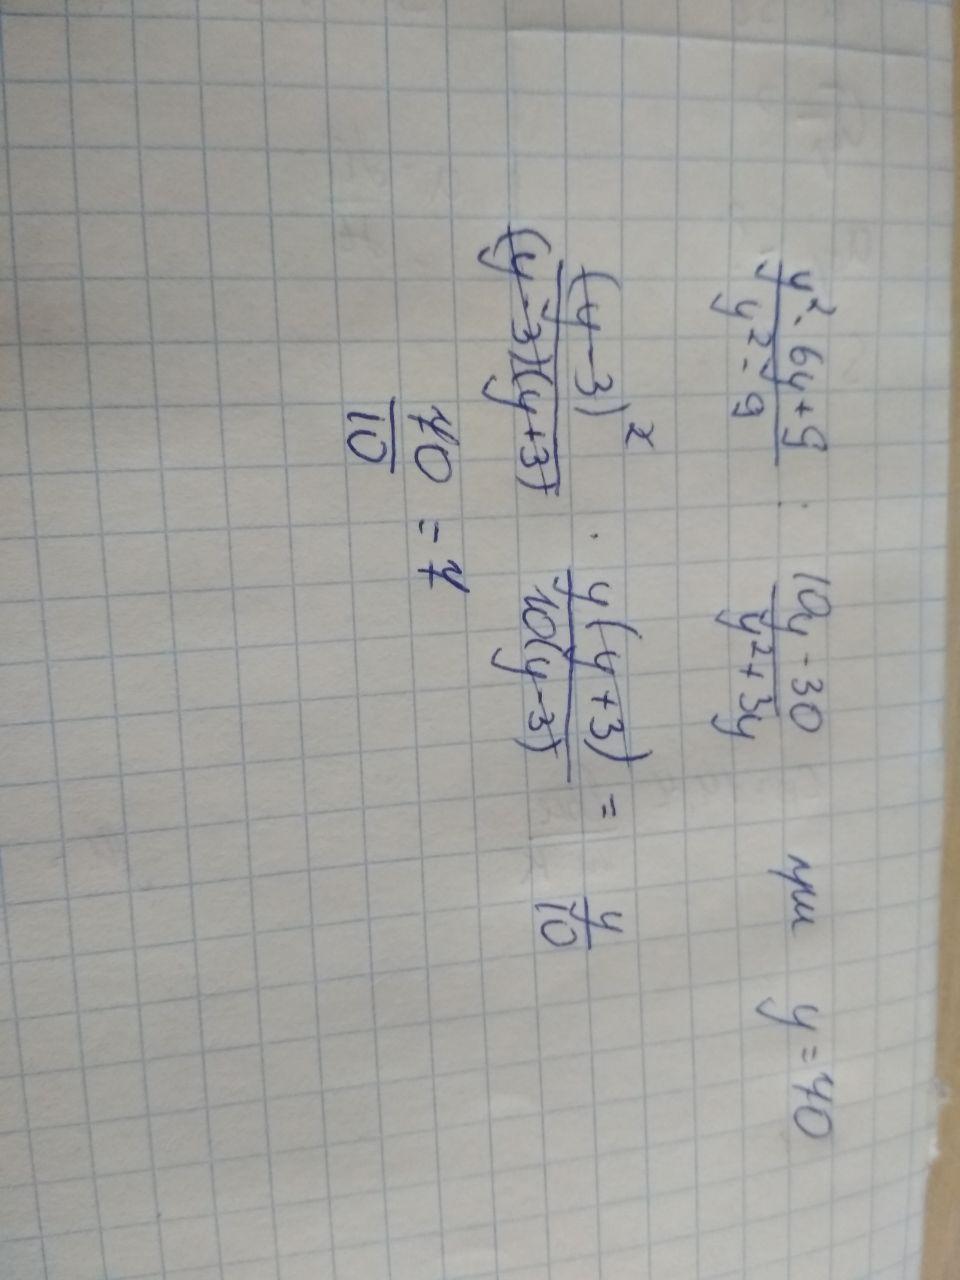 y² - 6y + 9 / y² - 9 : 10y - 30 / y² + 3y при y = 70
(y - 3)² / (y - 3)(y + 3) · y(y + 3) / 10(y - 3) = y / 10
70 / 10 = 7